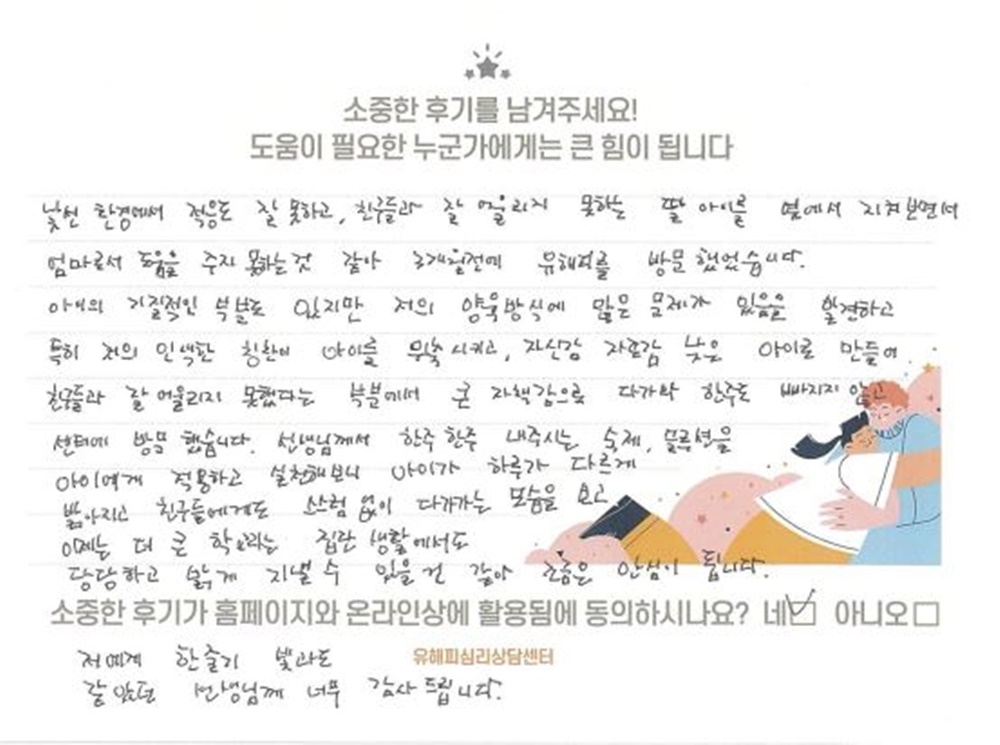 소중한 후기를 남겨주세요!
도움이 필요한 누군가에게는 큰 힘이 됩니다
낯선 환경에서 적응도 잘 못하고, 친구들과 잘 어울리지 못하는 딸 아이를 옆에서 지켜보면서
엄마로서 도움을 주지 못하는것 같아 3개월전에 유해피를 방문했었습니다.
아이의 기질적인 부분도 있지만 저의 양육방식에 많은 문제가 있음을 발견하고
특히 저의 인색한 칭찬이 아이를 위축시키고, 자신감 자존감 낮은 아이로 만들어
친구들과 잘 어울리지 못했다는 부분에서 큰 자책감으로 다가와 한주도 빠지지 않고
센터에 방문 했습니다. 선생님께서 한주 한주 내주시는 숙제, 솔루션을
아이에게 적용하고 실천해보니 아이가 하루가 다르게
밝아지고 친구들에게도 스스럼 없이 다가가는 모습을 보고
이제는 더 큰 학교라는 집단 생활에서도
당당하고 밝게 지낼 수 있을것 같아 조금은 안심이 됩니다.
소중한 후기가 홈페이지와 온라인상에 활용됨에 동의하시나요? 네 아니오
저에게 한줄기 빛과도
유해피심리상담센터
같았던 선생님께 너무 감사드립니다.